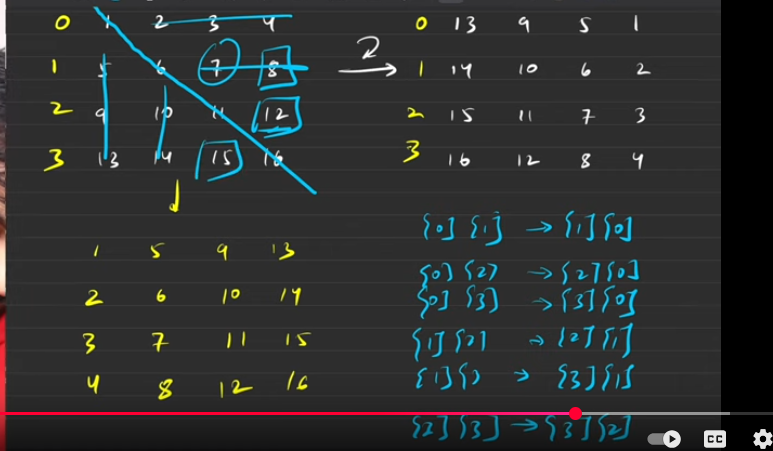 0 1 2 3 4
1 5 6 7 8
2 9 10 11 12
3 13 14 15 16
0 13 9 5 1
1 14 10 6 2
2 15 11 7 3
3 16 12 8 4
1 5 9 13
2 6 10 14
3 7 11 15
4 8 12 16
[0] [1] → [1] [0]
[0] [2] → [2] [0]
[0] [3] → [3] [0]
[1] [2] → [2] [1]
[1] [ ] → [3] [1]
[2] [3] → [3] [2]
CC